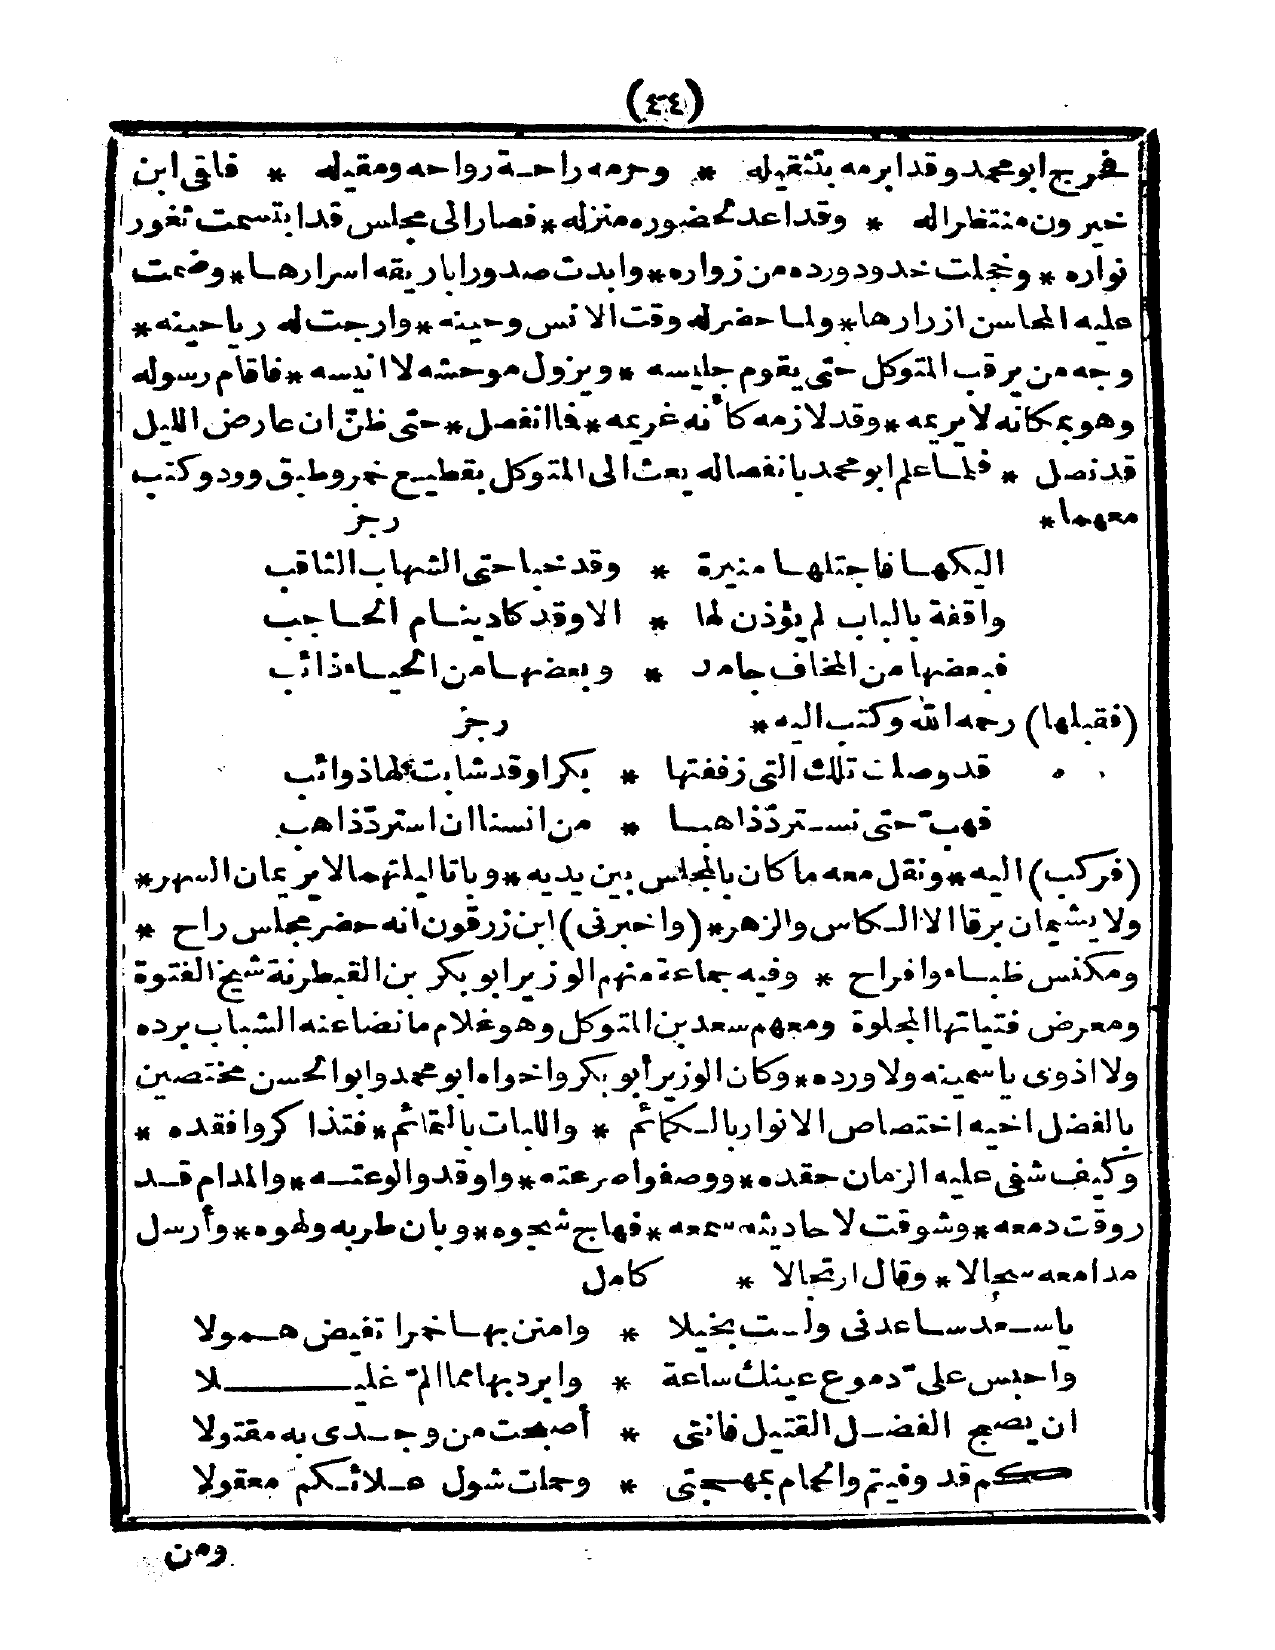 (٤٤)
فخرج ابو محمد وقد ابرمه بتثقيله * وحرمه راحة رواحه ومقيله * فلقى ابن
خيرون منتظرا له * وقد اعد لحضوره منزله * فصار الى مجلس قد ابتسمت ثغور
نواره * وخجلت خدود ورده من زواره * وابدت صدور اباريقه اسرارها * وضمت
عليه المحاسن ازرارها * ولما حضر له وقت الانس وحينه * وارجت له رياحينه *
وجه من يرقب المتوكل حتى يقوم جليسه * ويزول موحشه لا انيسه * فاقام رسوله
وهو بمكانه لا يريمه * وقد لازمه كأنه غريمه * فما انفصل * حتى ظنّ ان عارض الليل
قد نصل * فلما علم ابو محمد بانفصاله بعث الى المتوكل بقطيع خمر وطبق ورد وكتب
معهما * رجز
اليكها فاجتلها منيرة * وقد خبا حتى الشهاب الثاقب
واقفة بالباب لم يؤذن لها * الا وقد كاد ينام الحاجب
فبعضها من المخاف جامد * وبعضها من الحياء ذائب
(فقبلها) رحمه الله وكتب اليه * رجز
قد وصلت تلك التى زففتها * بكرا وقد شابت لها ذوائب
فهب حتى نسترد ذاهبا * من انسنا ان استرد ذاهب
(فركب) اليه * ونقل معه ما كان بالمجلس بين يديه * وباتا ليلتهما لا يريمان السهر *
ولا يشيمان برقا الا الكاس والزهر * (واخبرنى) ابن زرقون انه حضر مجلس راح *
ومكنس ظباء وافراح * وفيه جماعة منهم الوزير ابو بكر بن القبطرنة شيخ الفتوة
ومعرض فتياتها المجلوة ومعهم سعد بن المتوكل وهو غلام ما نضا عنه الشباب برده
ولا اذوى ياسمينه ولا ورده * وكان الوزير أبو بكر واخواه ابو محمد وابو الحسن مختصين
بالفضل اخيه اختصاص الانوار بالكمائم * واللبات بالتمائم * فتذاكروا فقده *
وكيف شفى عليه الزمان حقده * ووصفوا صرعته * واوقدوا لوعته * والمدام قد
روقت دمعه * وشوقت لاحاديثه سمعه * فهاج شجوه * وبان طربه ولهوه * وأرسل
مدامعه سجالا * وقال ارتجالا * كامل
يا سعد ساعدنى ولست بخيلا * وامنن بها خمرا تفيض همولا
واحبس علىّ دموع عينك ساعة * وابرد بها مما الم غليلا
ان يصبح الفضل القتيل فاننى * أصبحت من وجدى به مقتولا
كم قد وقيتم والحمام بمهجتى * وحملت شول علائكم معقولا
ومن